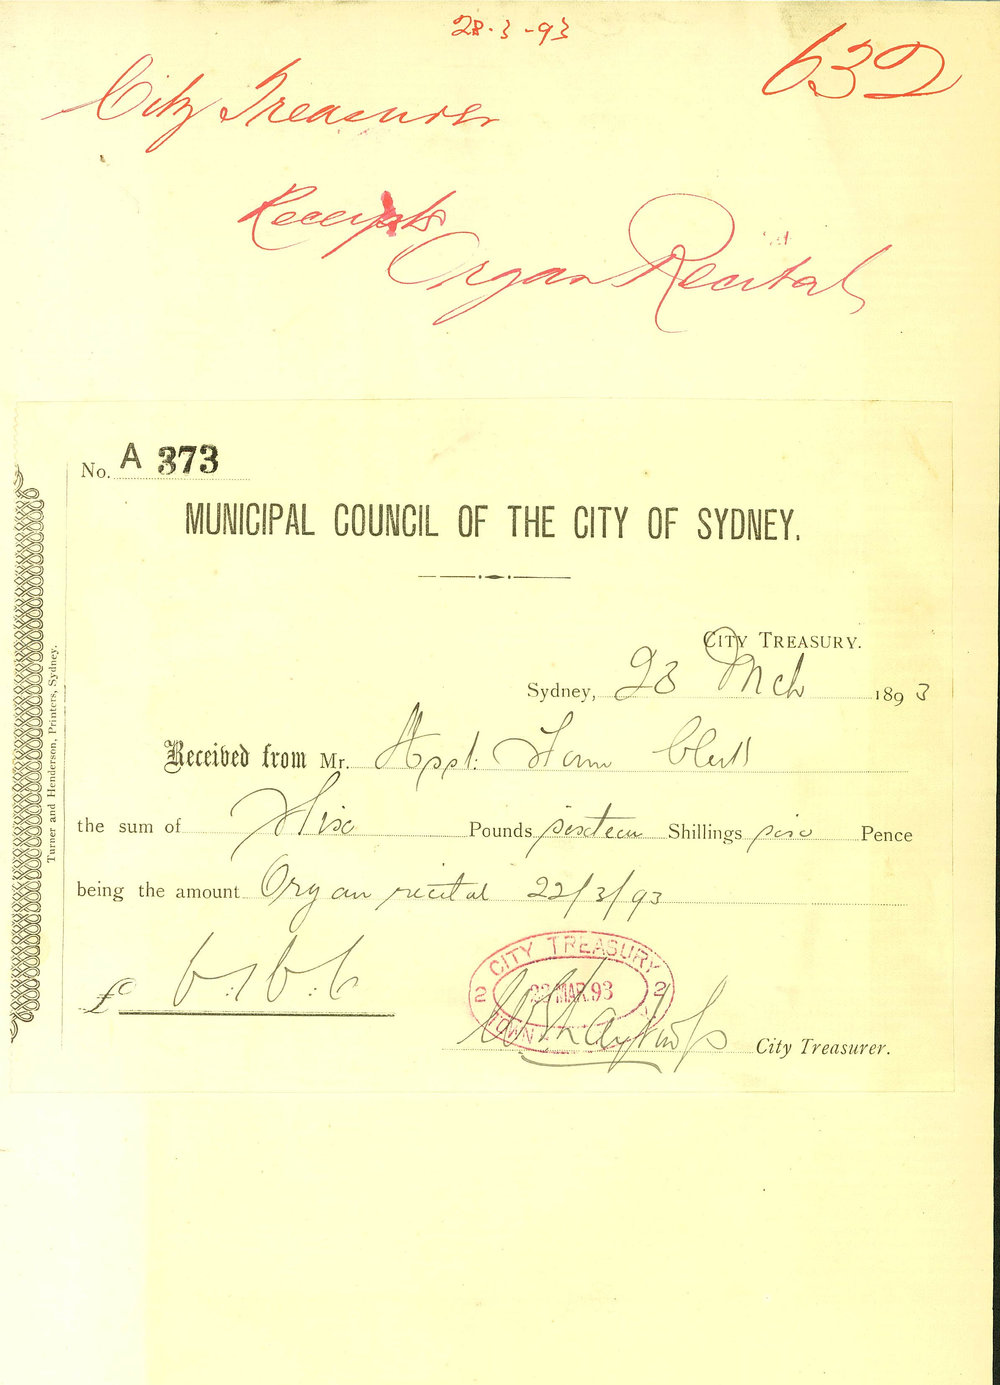 28·3·93
632
City Treasurer
Receipts
Organ Recital
No. A 373
MUNICIPAL COUNCIL OF THE CITY OF SYDNEY.
CITY TREASURY.
Sydney, 23 Mch 1893
Received from Mr. Asst: Town Clerk
the sum of Six Pounds sixteen Shillings six Pence
being the amount Organ recital 22/3/93
£ 6:16:6
CITY TREASURY
2 MAR. 93 2
TOWN
City Treasurer.
Turner and Henderson, Printers, Sydney.